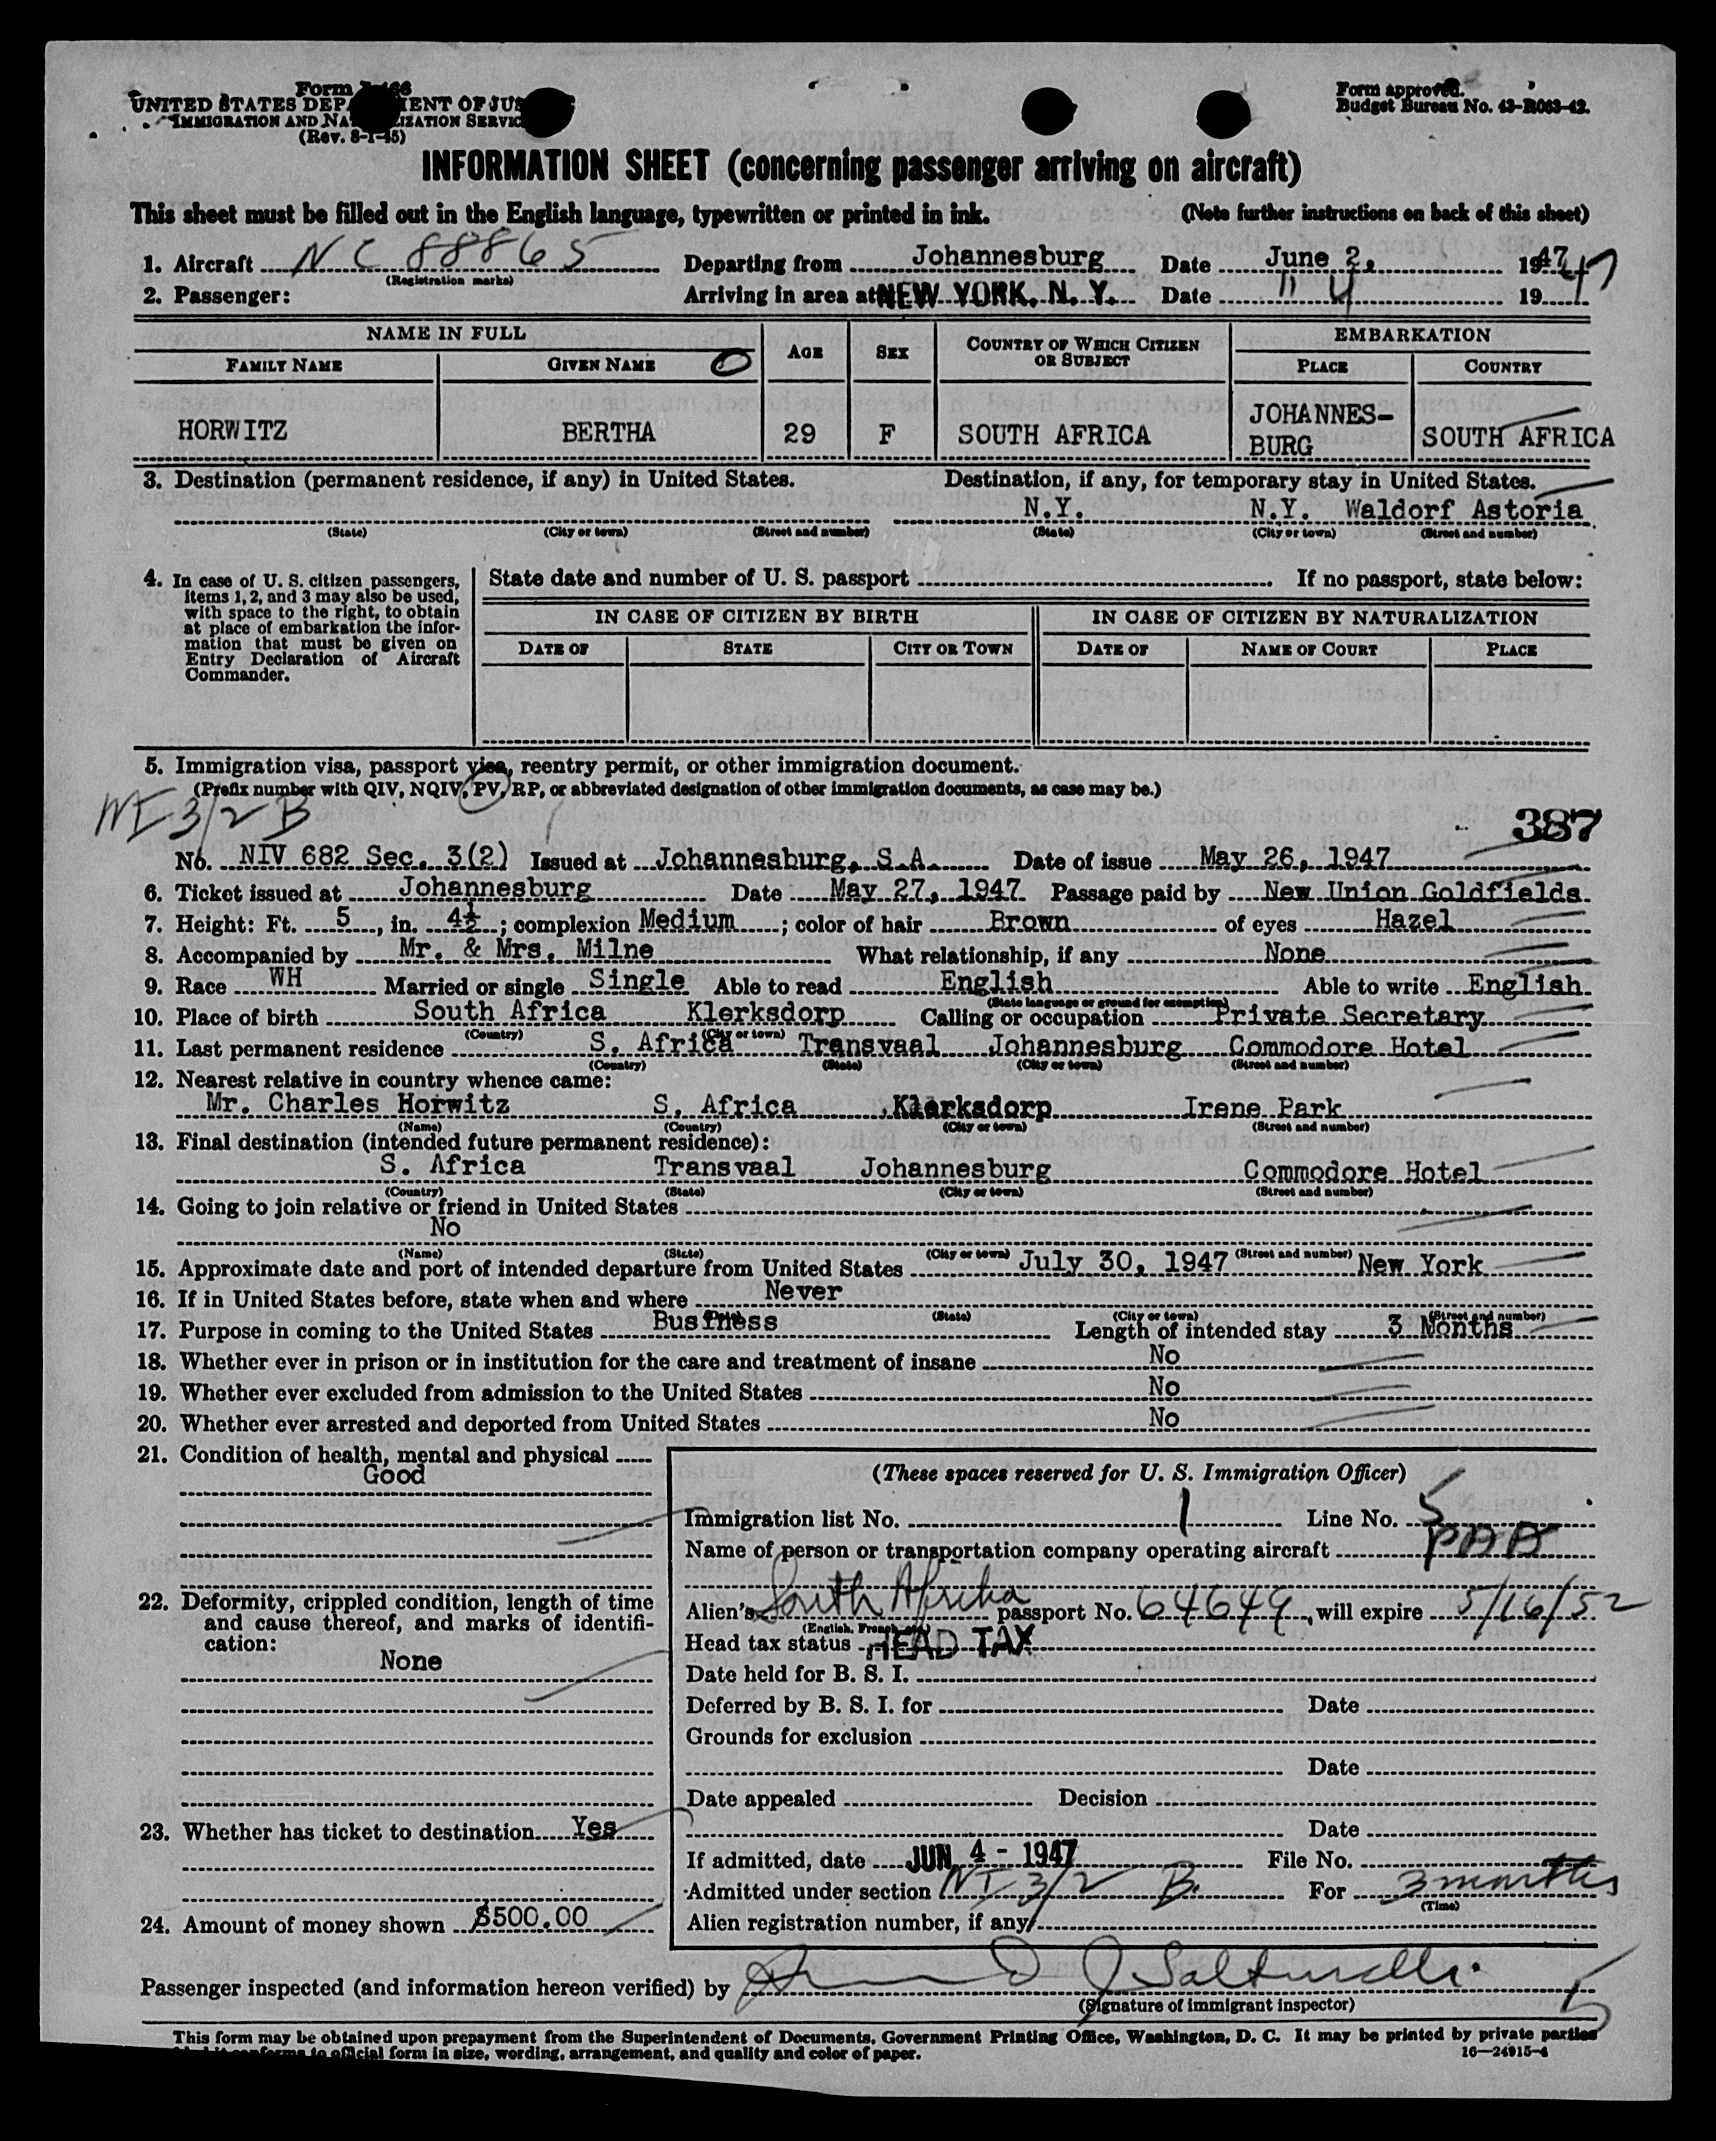 Form I-466
UNITED STATES DEPARTMENT OF JUSTICE
IMMIGRATION AND NATURALIZATION SERVICE
(Rev. 8-1-45)
Form approved.
Budget Bureau No. 43-R063-42.
INFORMATION SHEET (concerning passenger arriving on aircraft)
This sheet must be filled out in the English language, typewritten or printed in ink. (Note further instructions on back of this sheet)
1. Aircraft NC 88865 Departing from Johannesburg Date June 2, 1947
(Registration marks)
2. Passenger: Arriving in area at NEW YORK, N. Y. Date " 4 1947
NAME IN FULL AGE SEX COUNTRY OF WHICH CITIZEN OR SUBJECT EMBARKATION
FAMILY NAME GIVEN NAME PLACE COUNTRY
HORWITZ BERTHA 29 F SOUTH AFRICA JOHANNES-BURG SOUTH AFRICA
3. Destination (permanent residence, if any) in United States. Destination, if any, for temporary stay in United States.
N.Y. N.Y. Waldorf Astoria
(State) (City or town) (Street and number) (State) (City or town) (Street and number)
4. In case of U. S. citizen passengers,
items 1, 2, and 3 may also be used,
with space to the right, to obtain
at place of embarkation the infor-
mation that must be given on
Entry Declaration of Aircraft
Commander.
State date and number of U. S. passport If no passport, state below:
IN CASE OF CITIZEN BY BIRTH IN CASE OF CITIZEN BY NATURALIZATION
DATE OF STATE CITY OR TOWN DATE OF NAME OF COURT PLACE
5. Immigration visa, passport visa, reentry permit, or other immigration document.
(Prefix number with QIV, NQIV, PV, RP, or abbreviated designation of other immigration documents, as case may be.)
NI 3/2 B
387
No. NIV 682 Sec. 3(2) Issued at Johannesburg, S.A. Date of issue May 26, 1947
6. Ticket issued at Johannesburg Date May 27, 1947 Passage paid by New Union Goldfields
7. Height: Ft. 5, in. 4½; complexion Medium; color of hair Brown of eyes Hazel
8. Accompanied by Mr. & Mrs. Milne What relationship, if any None
9. Race WH Married or single Single Able to read English Able to write English
(State language or ground for exemption)
10. Place of birth South Africa Klerksdorp Calling or occupation Private Secretary
(Country) (City or town)
11. Last permanent residence S. Africa Transvaal Johannesburg Commodore Hotel
(Country) (State) (City or town) (Street and number)
12. Nearest relative in country whence came:
Mr. Charles Horwitz S. Africa Klerksdorp Irene Park
(Name) (Country) (City or town) (Street and number)
13. Final destination (intended future permanent residence):
S. Africa Transvaal Johannesburg Commodore Hotel
(Country) (State) (City or town) (Street and number)
14. Going to join relative or friend in United States
No
(Name) (State) (City or town) (Street and number)
15. Approximate date and port of intended departure from United States July 30, 1947 New York
16. If in United States before, state when and where Never
(Date) (State) (City or town) (Street and number)
17. Purpose in coming to the United States Business Length of intended stay 3 Months
18. Whether ever in prison or in institution for the care and treatment of insane No
19. Whether ever excluded from admission to the United States No
20. Whether ever arrested and deported from United States No
21. Condition of health, mental and physical
Good
22. Deformity, crippled condition, length of time
and cause thereof, and marks of identifi-
cation:
None
23. Whether has ticket to destination Yes
24. Amount of money shown $500.00
(These spaces reserved for U. S. Immigration Officer)
Immigration list No. 1 Line No. 5
Name of person or transportation company operating aircraft
Alien's South Afrika passport No. 64649, will expire 5/16/52
(English, French, etc.)
Head tax status HEAD TAX
Date held for B. S. I.
Deferred by B. S. I. for Date
Grounds for exclusion
Date
Date appealed Decision
Date
If admitted, date JUN 4 - 1947 File No.
Admitted under section NI 3/2 B. For 3 months
(Time)
Alien registration number, if any
Passenger inspected (and information hereon verified) by
(Signature of immigrant inspector)
5
This form may be obtained upon prepayment from the Superintendent of Documents, Government Printing Office, Washington, D. C. It may be printed by private parties
conforms to official form in size, wording, arrangement, and quality and color of paper.
16—24915-4